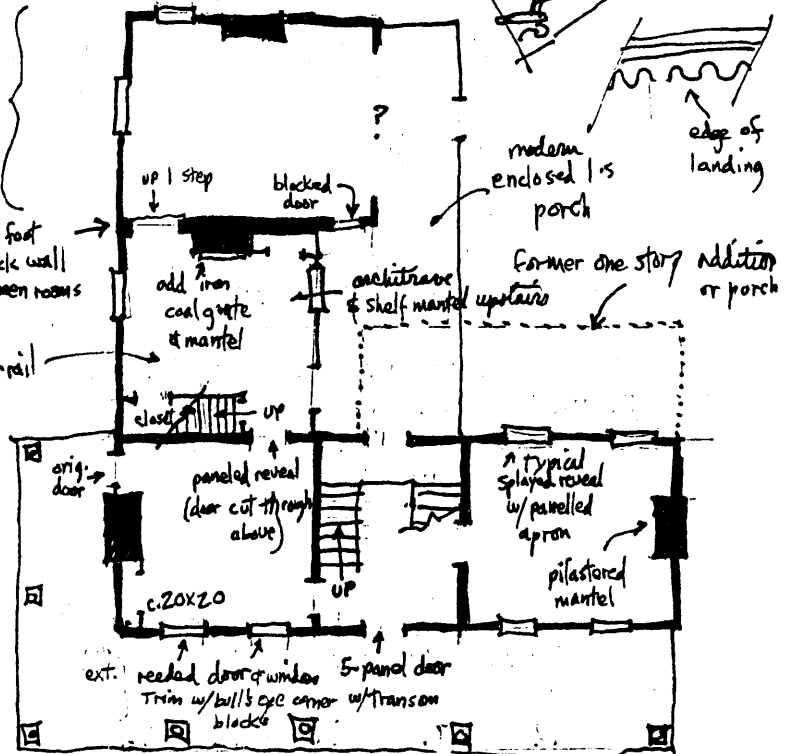 edge of
landing
?
modern
enclosed 1·s
porch
up 1 step
blocked
door
foot
ck wall
en rooms
Former one story addition
or porch
add iron
coal grate
& mantel
architrave
& shelf mantel upstairs
rail
closet
UP
orig.
door
paneled reveal
(door cut through
above)
typical
splayed reveal
w/ panelled
apron
UP
pilastered
mantel
c.20x20
ext. reeded door & window
Trim w/ bull's eye corner
blocks
5-panel door
w/Transom